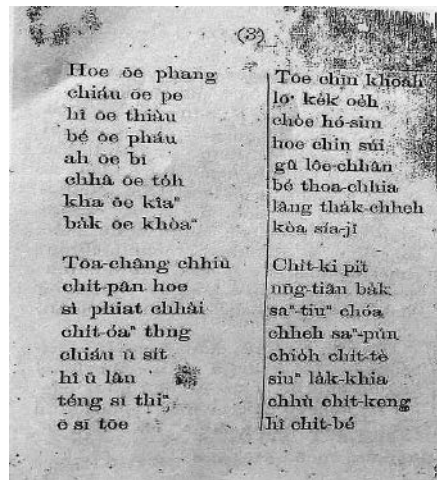 (3)
Hoe ōe phang
chiáu ōe pe
hî ōe thiàu
bé ōe pháu
ah ōe bī
chhâ ōe to̍h
kha ōe kîaⁿ
ba̍k ōe khòaⁿ
Tōa-châng chhiū
chi̍t-pân hoe
sì phiat chhài
chi̍t-óaⁿ thng
chiáu ū si̍t
hî ū lân
téng sī thiⁿ
ē sī tōe
Tōe chin khoah
lō͘ ke̍k oe̍h
chòe hó-sim
hoe chin súi
gû lôe-chhân
bé thoa-chhia
lâng tha̍k-chheh
kòa sía-jī
Chi̍t-ki pit
nn̄g-tiâu ba̍k
saⁿ-tiuⁿ chóa
chheh saⁿ-pún
chio̍h chi̍t-tè
siuⁿ la̍k-khia
chhù chi̍t-keng
hî chi̍t-bé